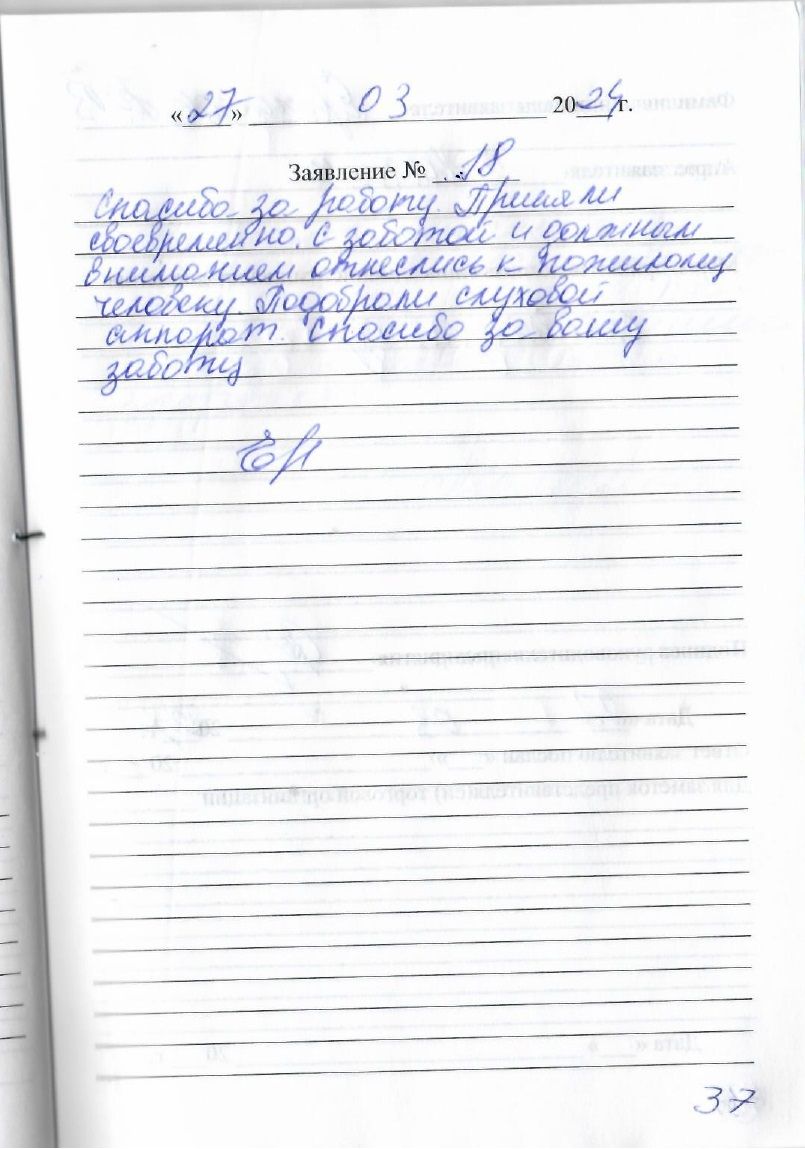 «27» 03 2024 г.
Заявление № 18
Спасибо за работу. Приняли
своевременно. С заботой и должным
вниманием отнеслись к пожилому
человеку. Подобрали слуховой
аппарат. Спасибо за вашу
заботу
37